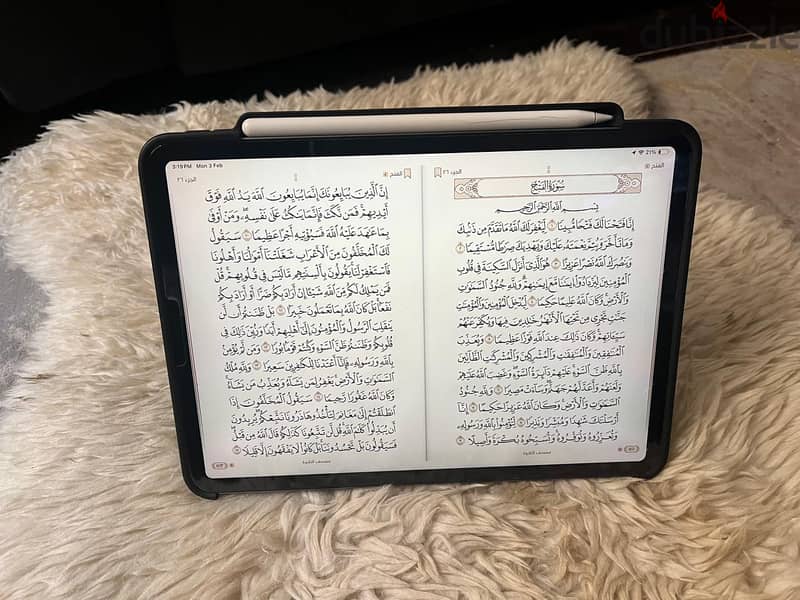 dubizzle
3:19 PM Mon 3 Feb
21%
الفتح
الجزء ٢٦
سورة الفتح
بسم الله الرحمن الرحيم
إنا فتحنا لك فتحا مبينا ١ ليغفر لك الله ما تقدم من ذنبك
وما تأخر ويتم نعمته عليك ويهديك صراطا مستقيما ٢
وينصرك الله نصرا عزيزا ٣ هو الذي أنزل السكينة في قلوب
المؤمنين ليزدادوا إيمنا مع إيمنهم ولله جنود السموت
والأرض وكان الله عليما حكيما ٤ ليدخل المؤمنين والمؤمنت
جنت تجري من تحتها الأنهر خلدين فيها ويكفر عنهم
سيئاتهم وكان ذلك عند الله فوزا عظيما ٥ ويعذب
المنفقين والمنفقت والمشركين والمشركت الظانين
بالله ظن السوء عليهم دائرة السوء وغضب الله عليهم
ولعنهم وأعد لهم جهنم وساءت مصيرا ٦ ولله جنود
السموت والأرض وكان الله عزيزا حكيما ٧ إنا
أرسلنك شهدا ومبشرا ونذيرا ٨ لتؤمنوا بالله ورسوله
وتعزروه وتوقروه وتسبحوه بكرة وأصيلا ٩
٥١١
الفتح
الجزء ٢٦
إن الذين يبايعونك إنما يبايعون الله يد الله فوق
أيديهم فمن نكث فإنما ينكث على نفسه ومن أوفى
بما عهد عليه الله فسيؤتيه أجرا عظيما ١٠ سيقول
لك المخلفون من الأعراب شغلتنا أمولنا وأهلونا
فاستغفر لنا يقولون بألسنتهم ما ليس في قلوبهم قل
فمن يملك لكم من الله شيئا إن أراد بكم ضرا أو أراد بكم
نفعا بل كان الله بما تعملون خبيرا ١١ بل ظننتم أن لن
ينقلب الرسول والمؤمنون إلى أهليهم أبدا وزين ذلك في
قلوبكم وظننتم ظن السوء وكنتم قوما بورا ١٢ ومن لم يؤمن
بالله ورسوله فإنا أعتدنا للكفرين سعيرا ١٣ ولله ملك
السموت والأرض يغفر لمن يشاء ويعذب من يشاء
وكان الله غفورا رحيما ١٤ سيقول المخلفون إذا
انطلقتم إلى مغانم لتأخذوها ذرونا نتبعكم يريدون
أن يبدلوا كلم الله قل لن تتبعونا كذلكم قال الله من قبل
فسيقولون بل تحسدوننا بل كانوا لا يفقهون إلا قليلا ١٥
٥١٢